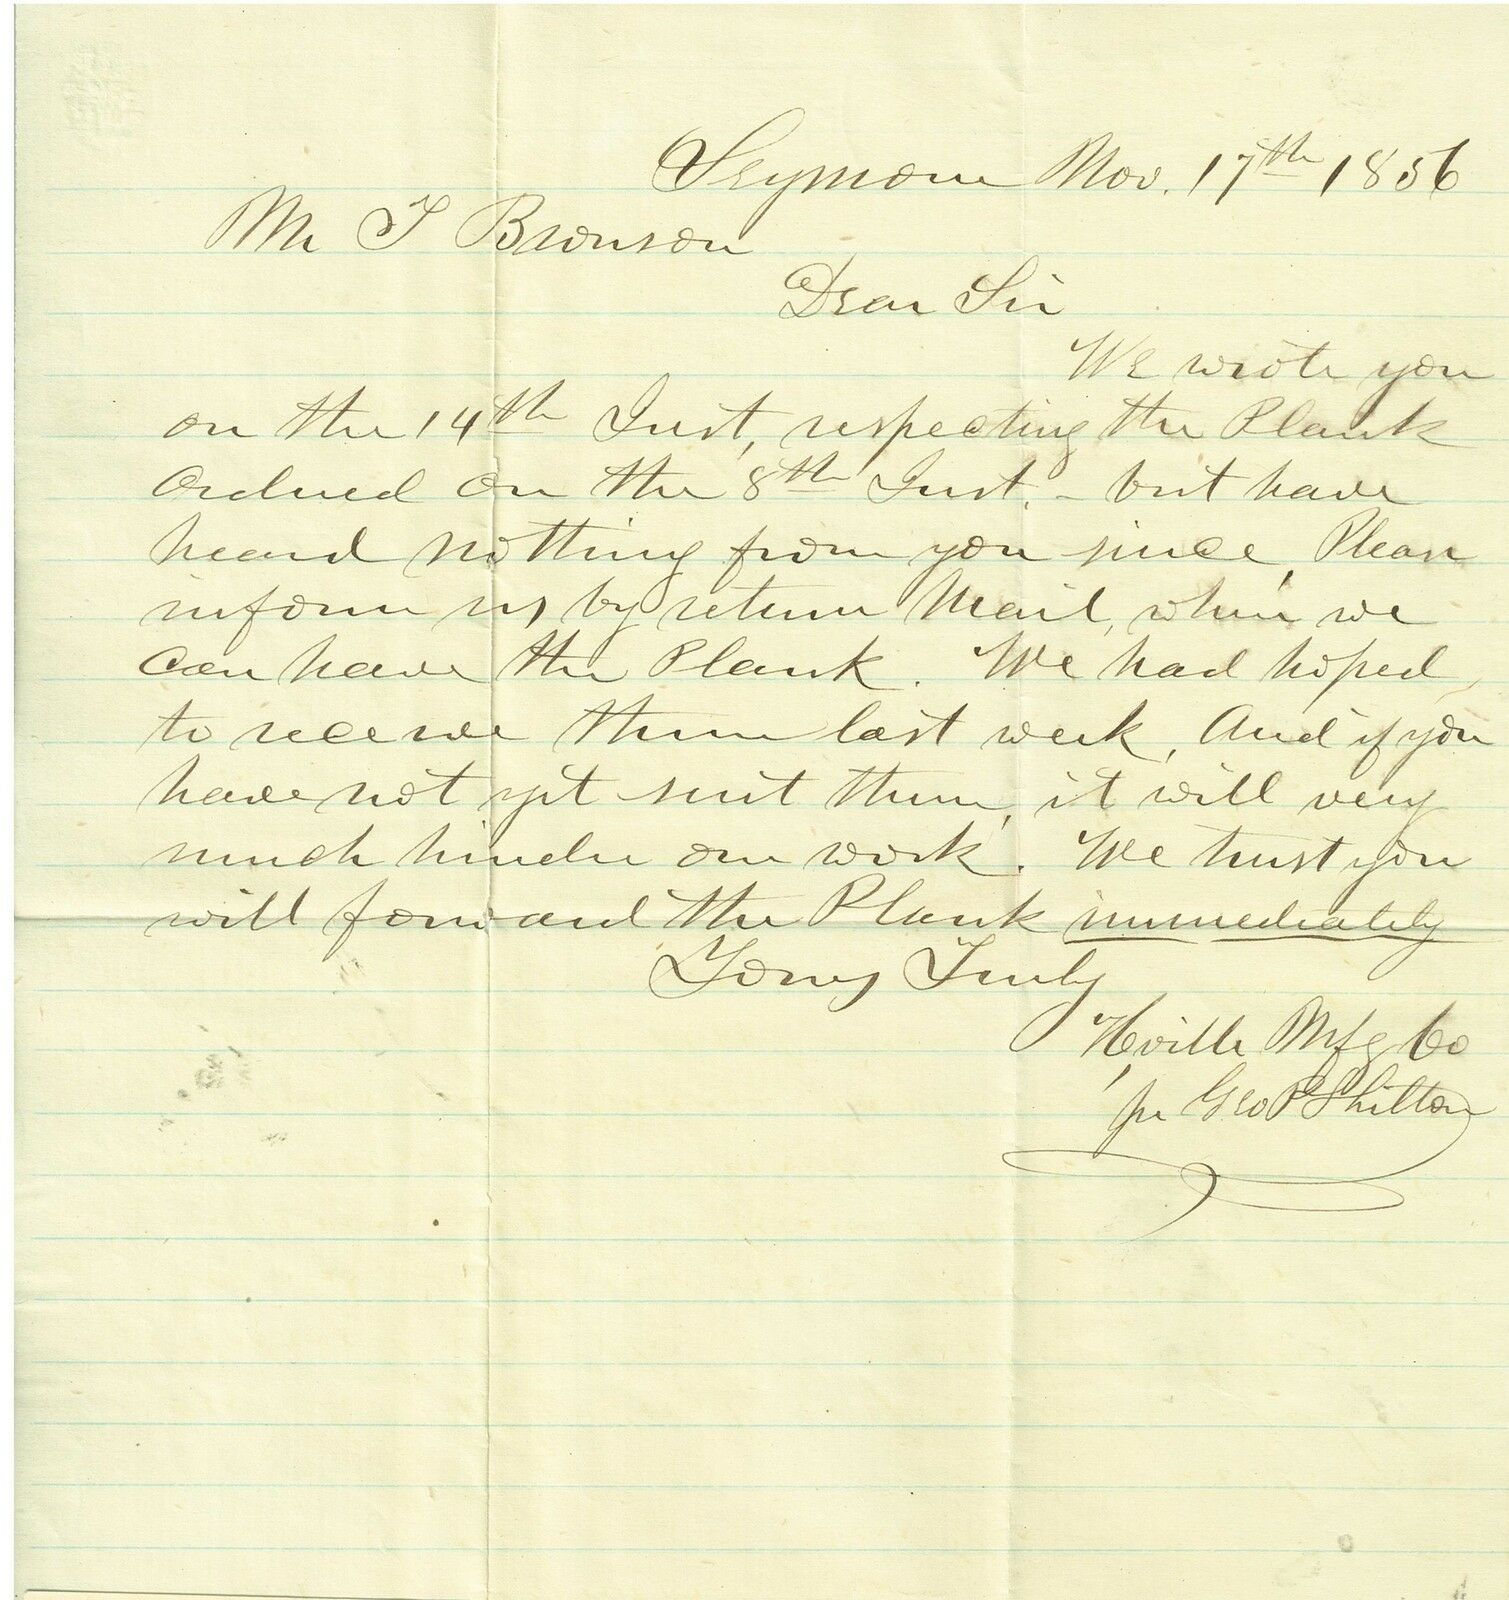 Seymour Nov. 17th 1856
Mr T Bronson
Dear Sir
We wrote you
on the 14th Inst, respecting the Plank
ordered on the 8th Inst. - but have
heard nothing from you since, Please
inform us by return Mail, when we
can have the Plank. We had hoped
to receive them last week, And if you
have not yet sent them, it will very
much hinder our work. We trust you
will forward the Plank immediately
Yours Truly
H,ville Mfg Co
pr Geo P Shelton